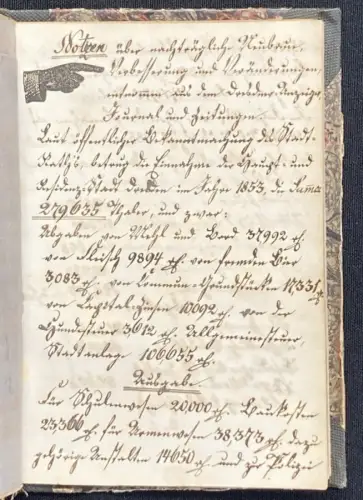 Notzen über nachträgliche Neubaun,
Verbesserung und Veränderungen,
entnommen aus dem Dresdner Anzeiger
Journal und Zeitungen.
Laut öffentlicher Bekanntmachung des Stadt-
Rath's, betrug die Einnahme der Haupt- und
Residenz-Stadt Dresden im Jahre 1853, die Suma
279635 Thaler, und zwar:
Abgaben von Mehl und Brod 37992 rh.
von Fleisch 9894 rh von fremden Bier
3083 rh. von Commun-Grundstücken 17331 rh
von Capital-Zinsen 10092 rh. von der
Hundesteuer 3612 rh. Allgemeinesteuer,
Stadtanlage 106655 rh.
Ausgabe.
Für Schulenwesen 20,000 rh. Baukosten
23,366 rh für Armenwesen 38,373 rh, dazu
gehörige Anstalten 14650 rh und zur Polizei